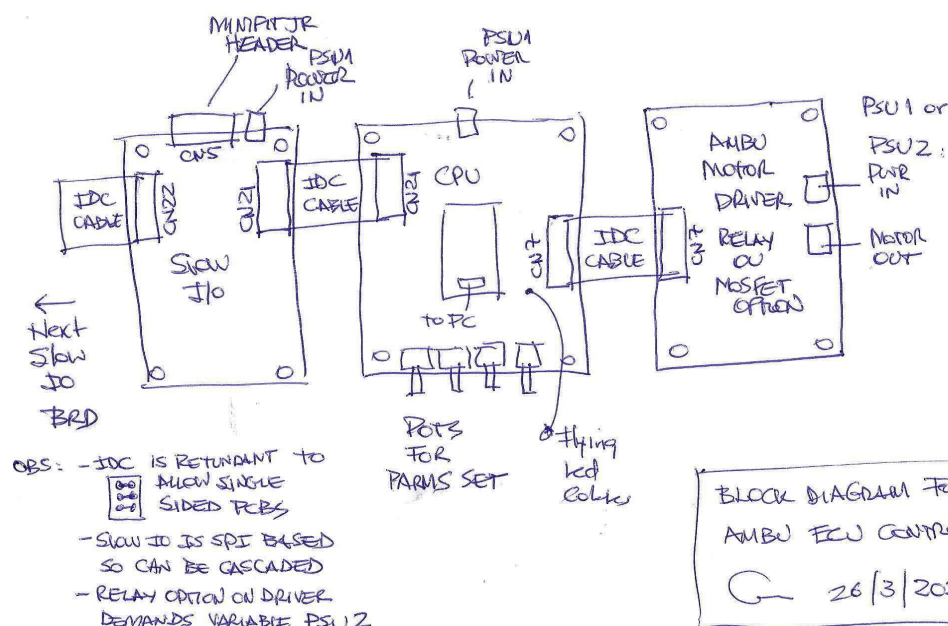 MINIFIT JR
HEADER
PSU1
POWER
IN
PSU1
POWER
IN
CN5
IDC
CABLE
CN22
CN21
IDC
CABLE
CN21
CPU
SLOW
I/O
to PC
CN7
IDC
CABLE
CN7
AMBU
MOTOR
DRIVER
RELAY
OU
MOSFET
OPTION
PSU1 or
PSU2:
PWR
IN
MOTOR
OUT
←
Next
Slow
IO
BRD
POTS
FOR
PARMS SET
Flying
led
OBS: - IDC IS RETUNDANT TO
ALLOW SINGLE
SIDED PCBS
- SLOW IO IS SPI BASED
SO CAN BE CASCADED
- RELAY OPTION ON DRIVER
DEMANDS VARIABLE PSU2
BLOCK DIAGRAM FO
AMBU ECU CONTRO
26/3/202